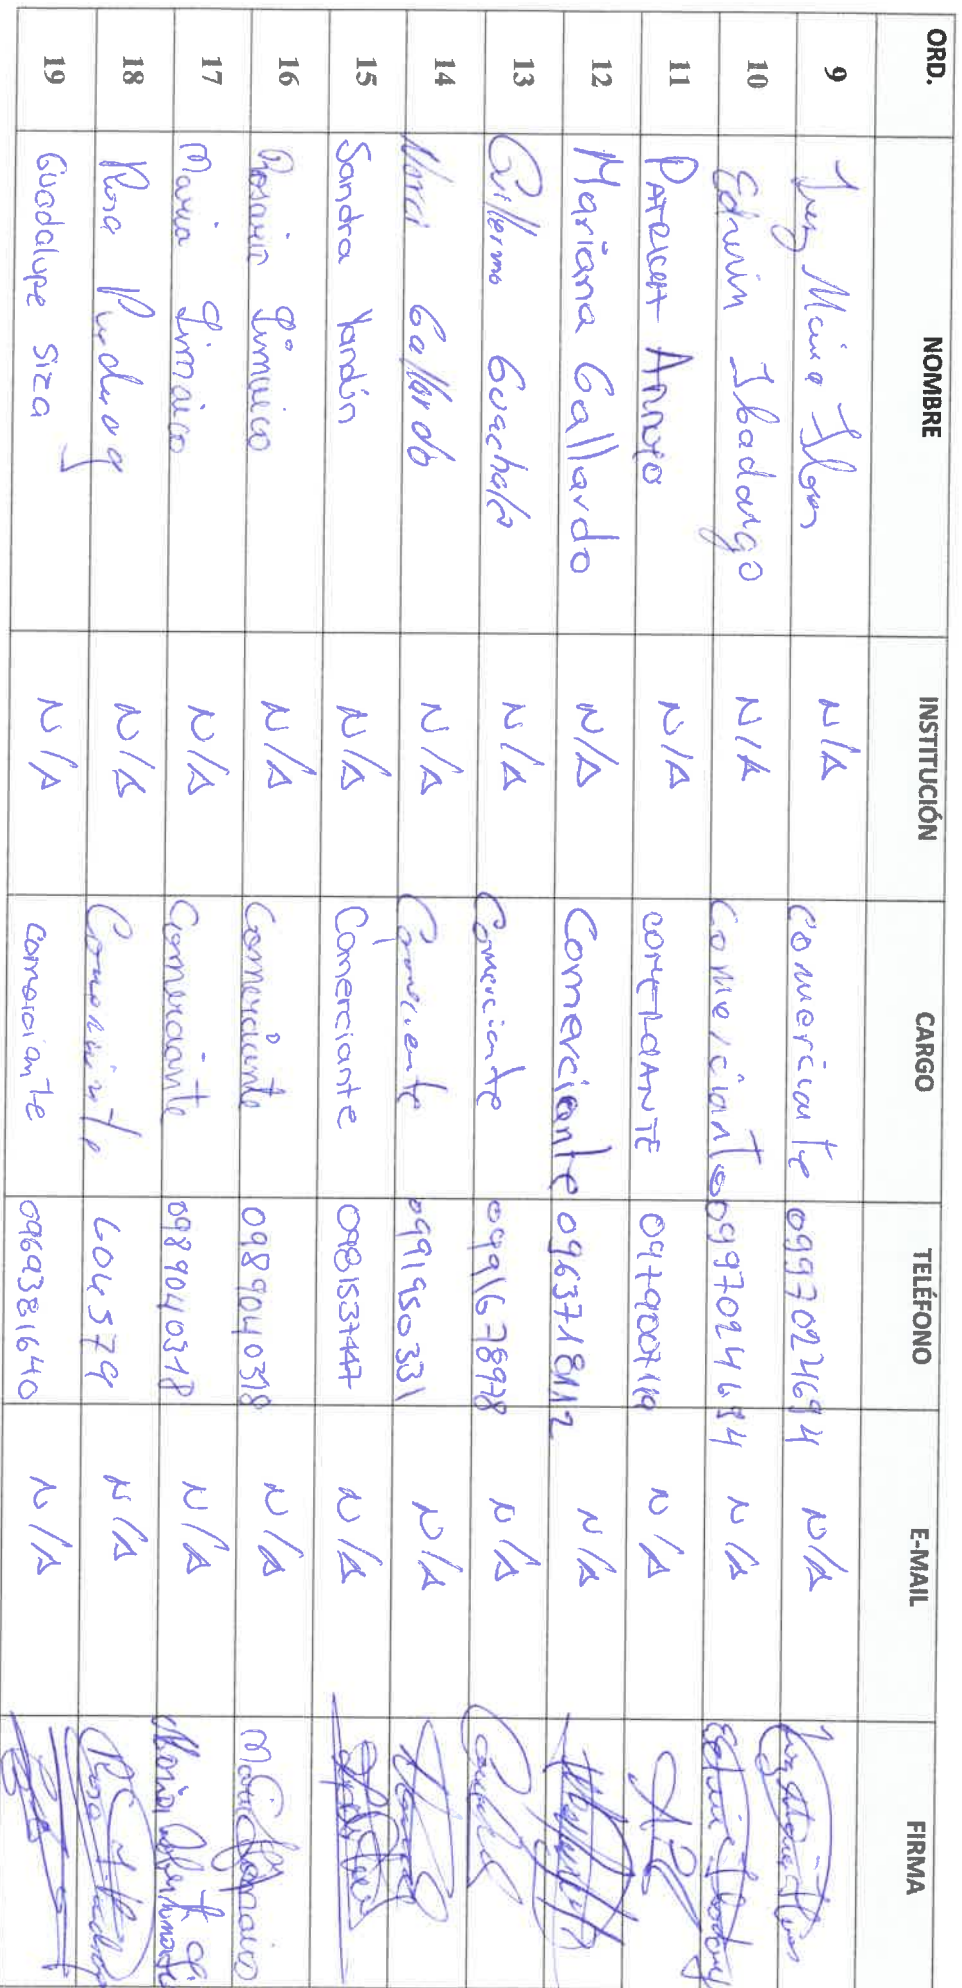 ORD. NOMBRE INSTITUCIÓN CARGO TELÉFONO E-MAIL FIRMA
9 Luz María N/A Comerciante 0997024694 N/A
10 Edwin Ibadango N/A Comerciante 0997024694 N/A
11 PATRICIA Arroyo N/A COMERCIANTE N/A
12 Mariana Gallardo N/A Comerciante 0963718112 N/A
13 Guillermo Guachala N/A Comerciante 0991678978 N/A
14 Gallardo N/A Comerciante 0991950331 N/A
15 Sandra Yandún N/A Comerciante N/A
16 Rosario Limaico N/A Comerciante 0989040318 N/A
17 Maria Limaico N/A Comerciante 0989040318 N/A
18 Rosa N/A Comerciante N/A
19 Guadalupe Siza N/A Comerciante 0969381640 N/A